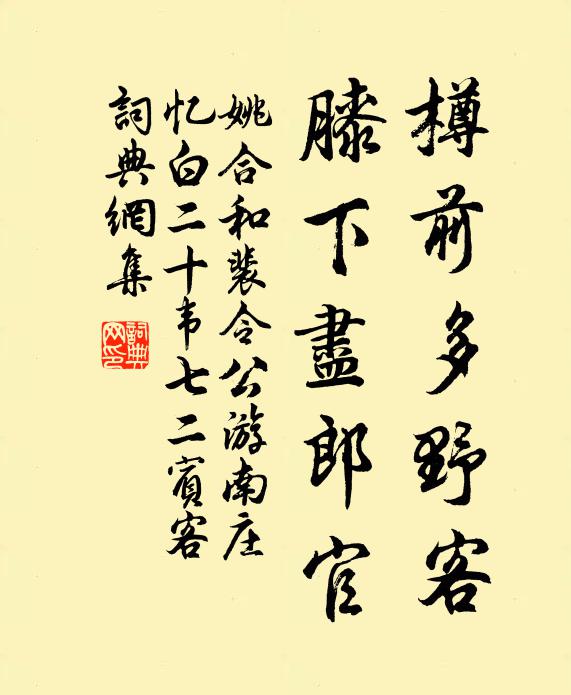 樽前多野客
膝下盡郎官
姚合和裴令公游南庄
忆白二十韦七二賓客
詞典網集
詞典
网印